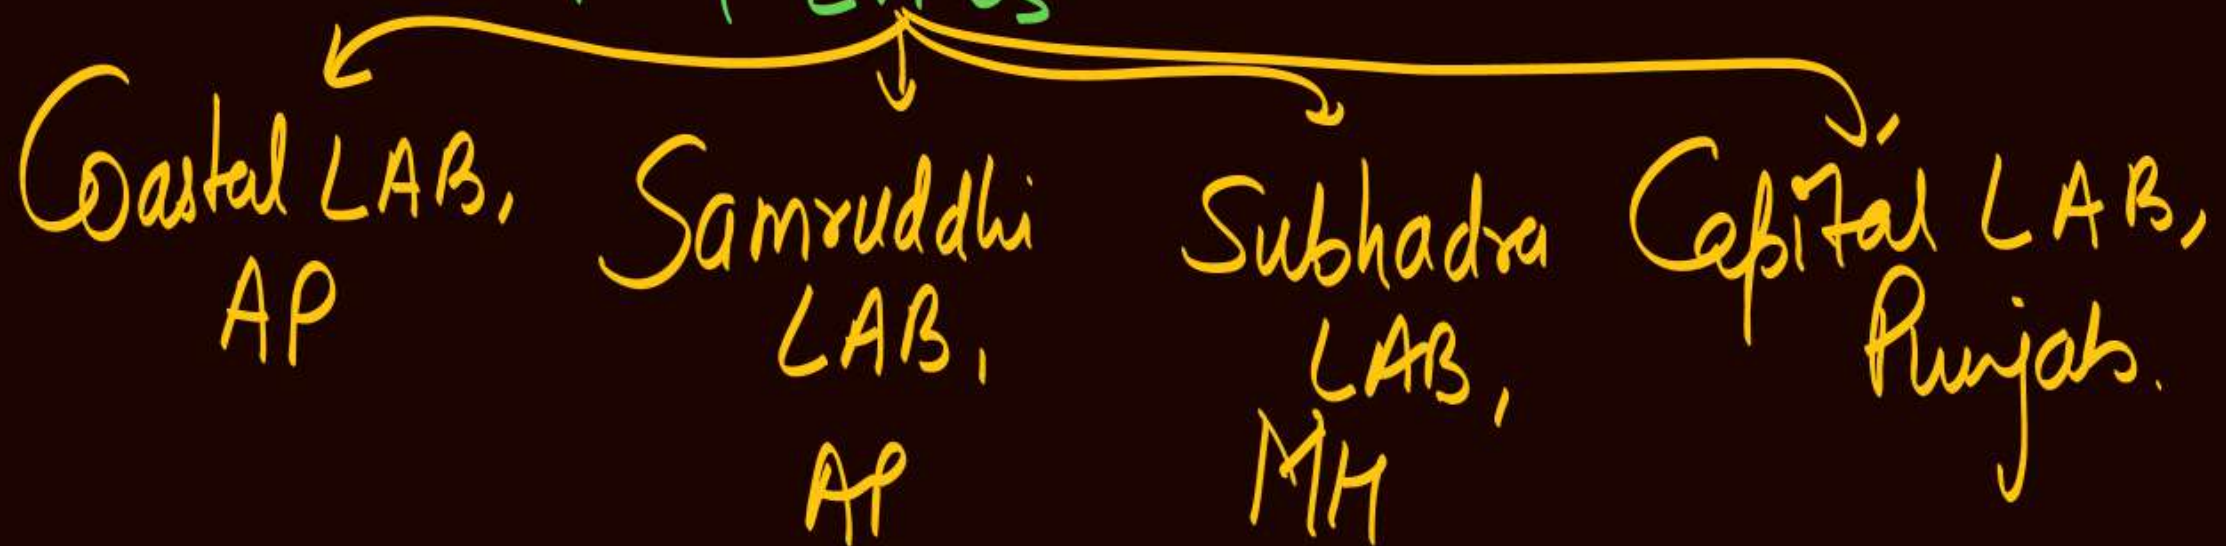 Coastal LAB,
AP
Samruddhi
LAB,
AP
Subhadra
LAB,
MH
Capital LAB,
Punjab.